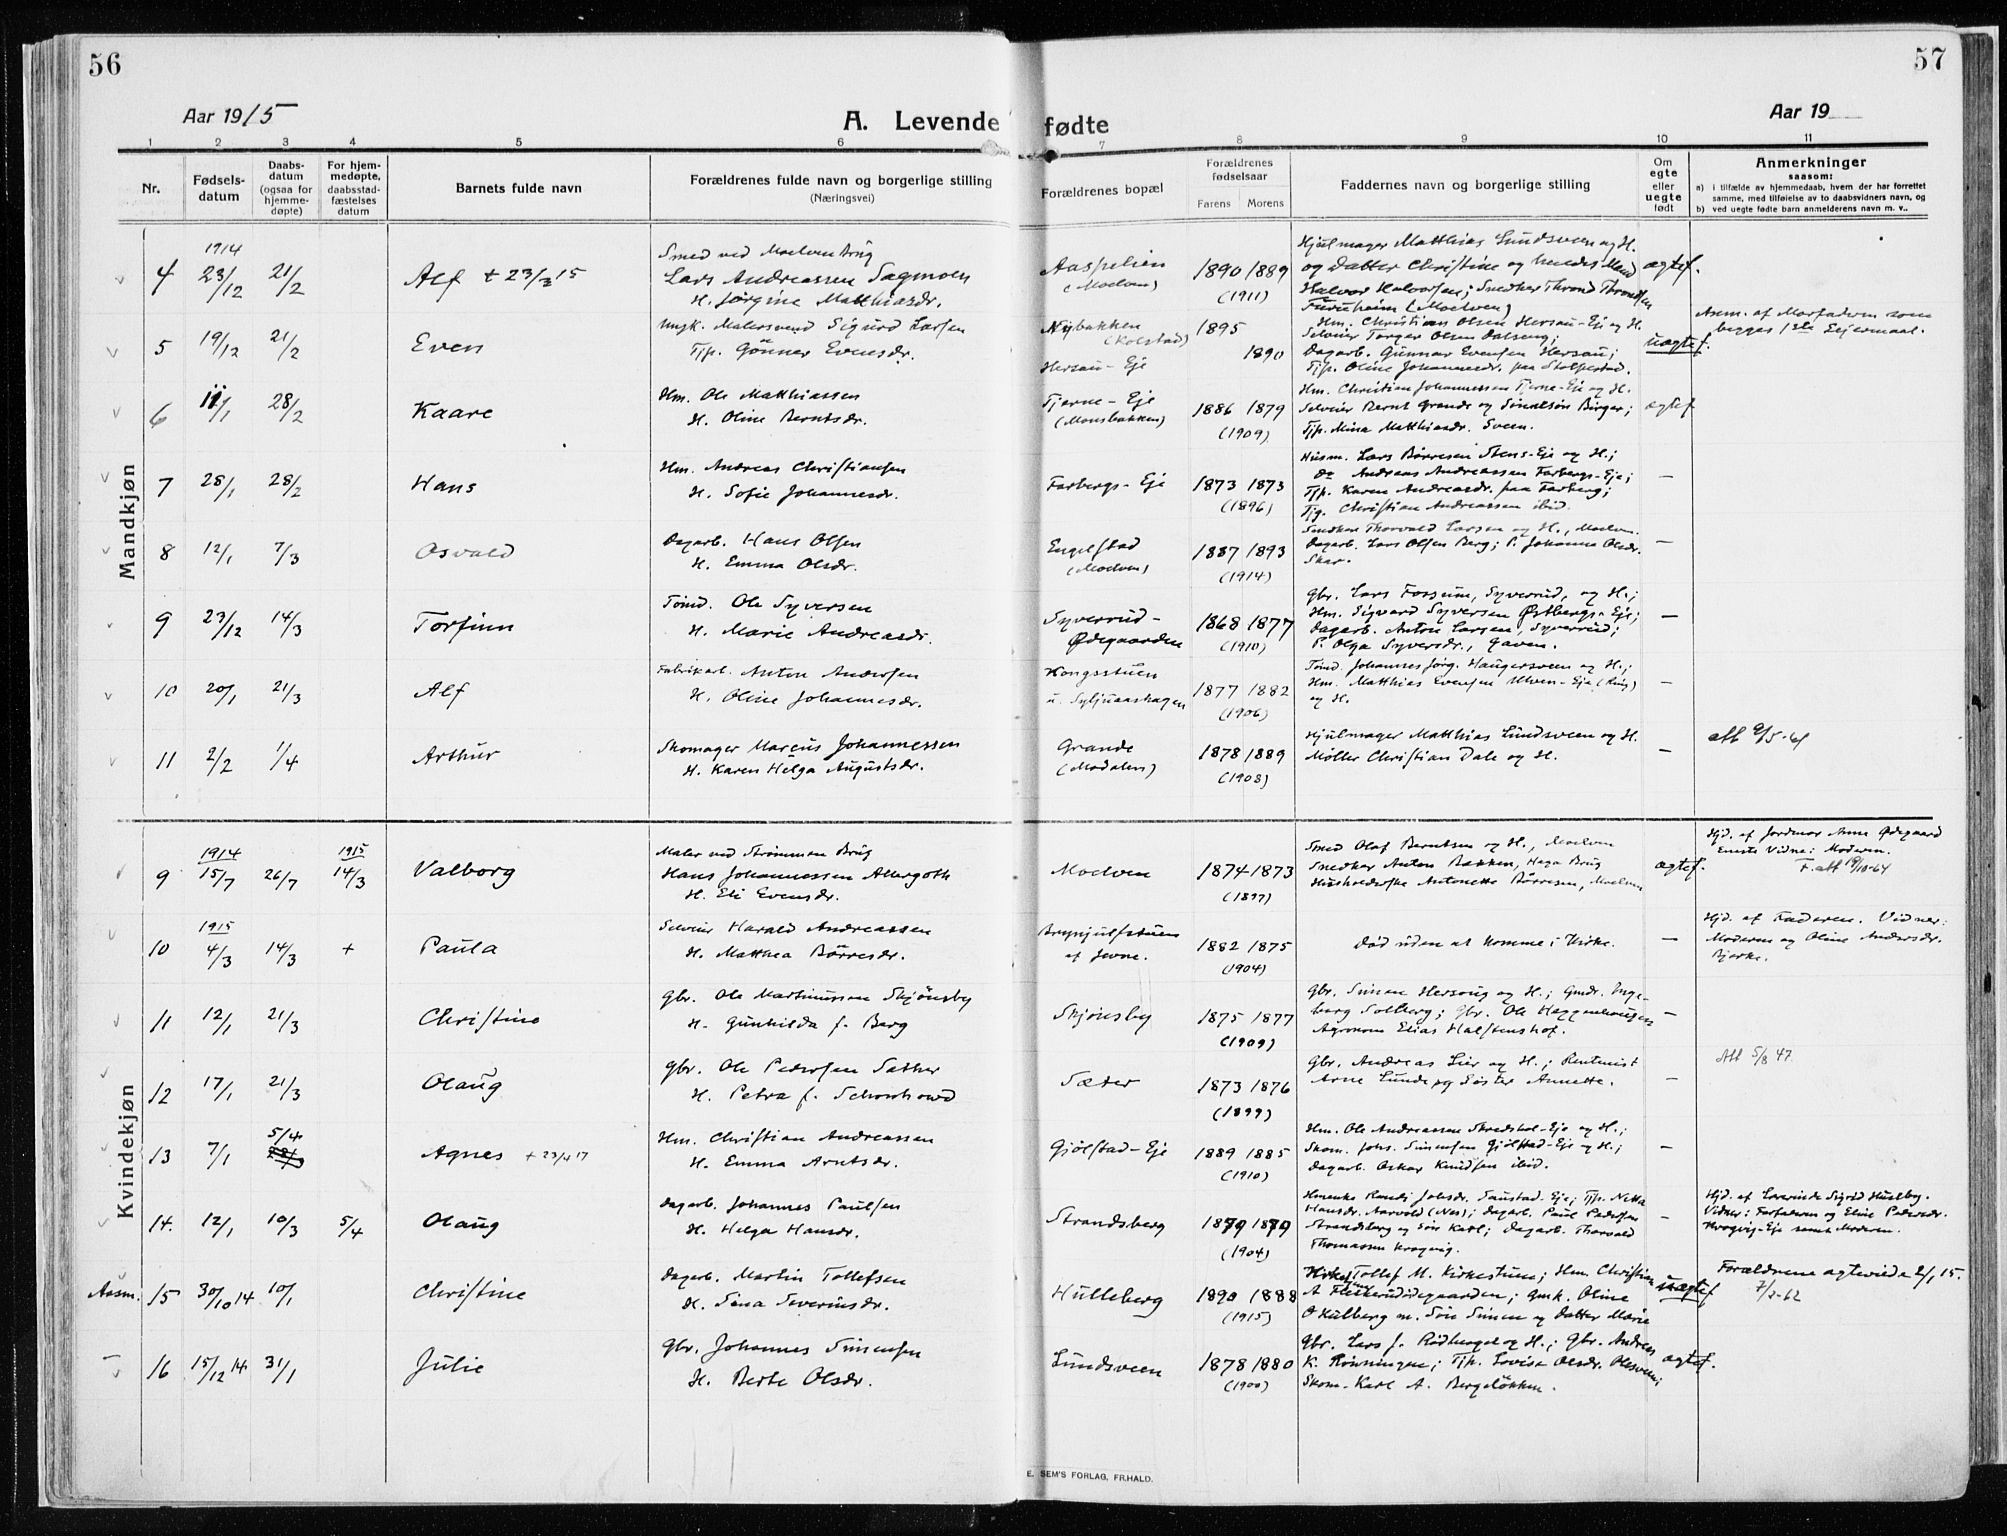 56
57
Aar 1915
A. Levende fødte
Aar 19
1 2 3 4 5 6 7 8 9 10 11
Nr.
Fødsels-
datum
Daabs-
datum
(ogsaa for
hjemme-
døpte)
For hjem-
medøpte,
daabsstad-
fæstelses
datum
Barnets fulde navn
Forældrenes fulde navn og borgerlige stilling
(Næringsvei)
Forældrenes bopæl
Forældrenes
fødselsaar
Farens Morens
Faddernes navn og borgerlige stilling
Om
egte
eller
uegte
født
Anmerkninger
saasom:
a) i tilfælde av hjemmedaab, hvem der har forrettet
samme, med tilføielse av to daabsvidners navn, og
b) ved uegte fødte barn anmelderens navn m. v..
Mandkjøn
1914
4 23/12 21/2 Alf + 23/3 15
Smed ved Moelven Brug
Lars Andreassen Sagmoen
H. Jørgine Matthiasdr.
Aaspelien
(Moelven)
1890 1889
(1911)
Hjulmager Matthias Lundsveen og H.
og Datter Christine og hendes Mand
Halvor Halvorsen; Snedker Thrond Throndsen
Furuheim (Moelven)
ægtef.
5 19/12 21/2 Even
Ungk. Malersvend Sigurd Larsen
Tjp. Gunner Evensdr.
Nybakken
(Kolstad)
Hersau-Eje
1895
1890
Hm. Christian Olsen Hersau-Eje og H.
Selveier Torger Olsen Dalseng;
Dagarb. Gunnar Evensen Hersau;
Tjp. Oline Johannesdr. paa Stolpestad.
uægtef.
Anm. af Morfaderen som
begges 1ste Lejermaal.
6 11/1 28/2 Kaare
Hm. Ole Matthiassen
H. Oline Berntsdr.
Tjerne-Eje
(Monsbakken)
1886 1879
(1909)
Hm. Christian Johannessen Tjerne-Eje og H.
Selveier Bernt Grande og Sønnesøn Birger;
Tjp. Mina Matthiasdr. Sveen.
ægtef
7 28/1 28/2 Hans
Hm. Andreas Christiansen
H. Sofie Johannesdr.
Farbergs-Eje
1873 1873
(1896)
Husm. Lars Børresen Stens-Eje og H.;
Do Andreas Andreassen Farbergs-Eje;
Tjp. Karen Andreasdr. paa Farberg;
Tjg. Christian Andreassen ibid.
—
8 12/1 7/3 Osvald
Dagarb. Hans Olsen
H. Emma Olsdr.
Engelstad
(Moelven)
1887 1893
(1914)
Snedker Thorvald Larsen og H., Moelven.
Dagarb. Lars Olsen Berg; P. Johanna Olsdr.
Skar.
—
9 23/12 14/3 Torfinn
Tømd. Ole Syversen
H. Marie Andreasdr.
Syverrud-
Ødegaarden
1868 1877
(1910)
Gbr. Lars Fossum, Syverrud, og H.;
Hm. Sigvard Syversen Østbergs-Eje;
Dagarb. Anton Larsen, Syverrud;
P. Olga Syversdr., Gaven.
—
10 20/1 21/3 Alf
Fabrikarb. Anton Andersen
H. Oline Johannesdr.
Kongsstuen
u. Syljuaashagen
1877 1882
(1906)
Tømd. Johannes Jørg. Haugersveen og H.;
Hm. Matthias Evensen Ulven-Eje (Ring)
og H.
—
11 2/2 1/4 Arthur
Skomager Marcus Johannessen
H. Karen Helga Augustsdr.
Grande
(Modalen)
1878 1889
(1908)
Hjulmager Matthias Lundsveen og H.
Møller Christian Dale og H.
—
att 9/5-61
Kvindekjøn
1914 1915
9 15/7 26/7 14/3 Valborg
Maler ved Strømmen Brug
Hans Johannessen Allergoth
H. Eli Evensdr.
Moelven
1874 1873
(1897)
Smed Olof Berntsen og H., Moelven
Snedker Anton Bakken, Haga Brug
Husholderske Antonette Børresen, Moelven
ægtef.
Hjd. af Jordmor Anne Ødegaard
Eneste Vidne: Moderen.
F. att 19/10-64
1915
10 4/3 14/3 + Paula
Selveier Harald Andreassen
H. Matthea Børresdr.
Brynjulfstuen
af Jevne.
1882 1875
(1904)
Død uden at komme i Kirke.
—
Hjd. af Faderen. Vidner:
Moderen og Oline Andersdr.
Bjerke.
11 12/1 21/3 Christine
Gbr. Ole Martinussen Skjønsby
H. Gunhilda f. Berg
Skjønsby
1875 1877
(1909)
Gbr. Simen Hersoug og H.; Gmdr. Inge-
borg Solberg; Gbr. Ole Heggenhougen
Agronom Elias Halstenshof.
—
12 17/1 21/3 Olaug
Gbr. Ole Pedersen Sæther
H. Petra f. Schonhowd
Sæter
1873 1876
(1899)
Gbr. Andreas Lier og H.; Rentenist
Arne Lunde og Søster Annette.
—
Att 5/8 47
13 7/1 5/4 28/3 Agnes + 23/4 17
Hm. Christian Andreassen
H. Emma Arntsdr.
Gjølstad-Eje
1889 1885
(1910)
Hm. Ole Andreassen Skredshol-Eje og H.;
Skom. Johs. Simensen Gjølstad-Eje og H.;
Dagarb. Oskar Knudsen ibid.
—
14. 12/1 10/3 5/4 Olaug
Dagarb. Johannes Paulsen
H. Helga Hansdr.
Strandsberg
1879 1879
(1904)
Hmenke Randi Johsdr. Saustad-Eje; Tjp. Netta
Hansdr. Aarvold (Nes); Dagarb. Paul Pedersen
Strandsberg og Søn Karl; Dagarb. Thorvald
Thomassen Krogvig.
—
Hjd. af Lærerinde Sigrid Huseby.
Vidner: Farfaderen og Eline Pedersdr.
Krogvig-Eje samt Moderen.
Aasm. 15 30/10 14 10/1 Christine
Dagarb. Martin Tollefsen
H. Sina Severinsdr.
Hulleberg
1890 1888
(1915)
Tollef M. Kirkestuen; Hm. Christian
A Flesketudødegaarden; Gmk. Oline
O Kulberg m. Søn Simen og Datter Marie
uægtef
Forældrene ægteviede 2/1 15.
7/2-62
— 16 15/12 14 31/1 Julie
Gbr. Johannes Simensen
H. Berte Olsdr.
Lundsveen
1878 1880
(1900)
Gbr. Lars J. Rødhagel og H.; Gbr. Andreas
K. Rønningen; Tjp. Lovise Olsdr. Olesveen;
Skom. Karl A. Bergeløkken.
ægtef.
E. SEM'S FORLAG, FR.HALD.